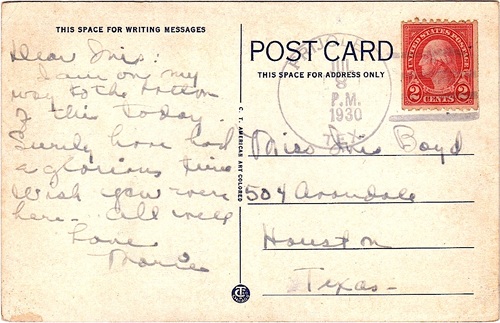 THIS SPACE FOR WRITING MESSAGES
Dear Inis:
I am on my
way to the bottom
of this today.
Surely have had
a glorious time
Wish you were
here - all well
Love
Marie
C. T. AMERICAN ART COLORED
POST CARD
THIS SPACE FOR ADDRESS ONLY
8
P.M.
1930
UNITED STATES POSTAGE
2 CENTS 2
Miss Inis Boyd
504 Avondale
Houston
Texas-